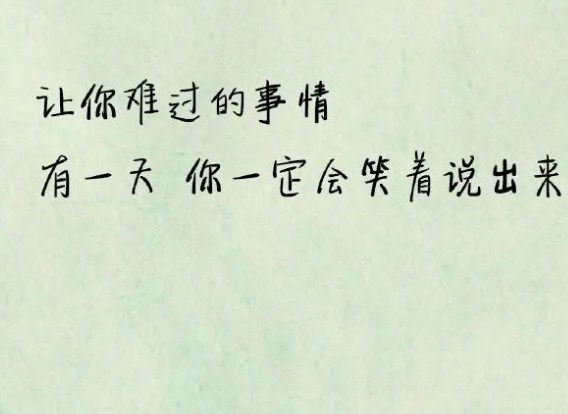 让你难过的事情
有一天 你一定会笑着说出来